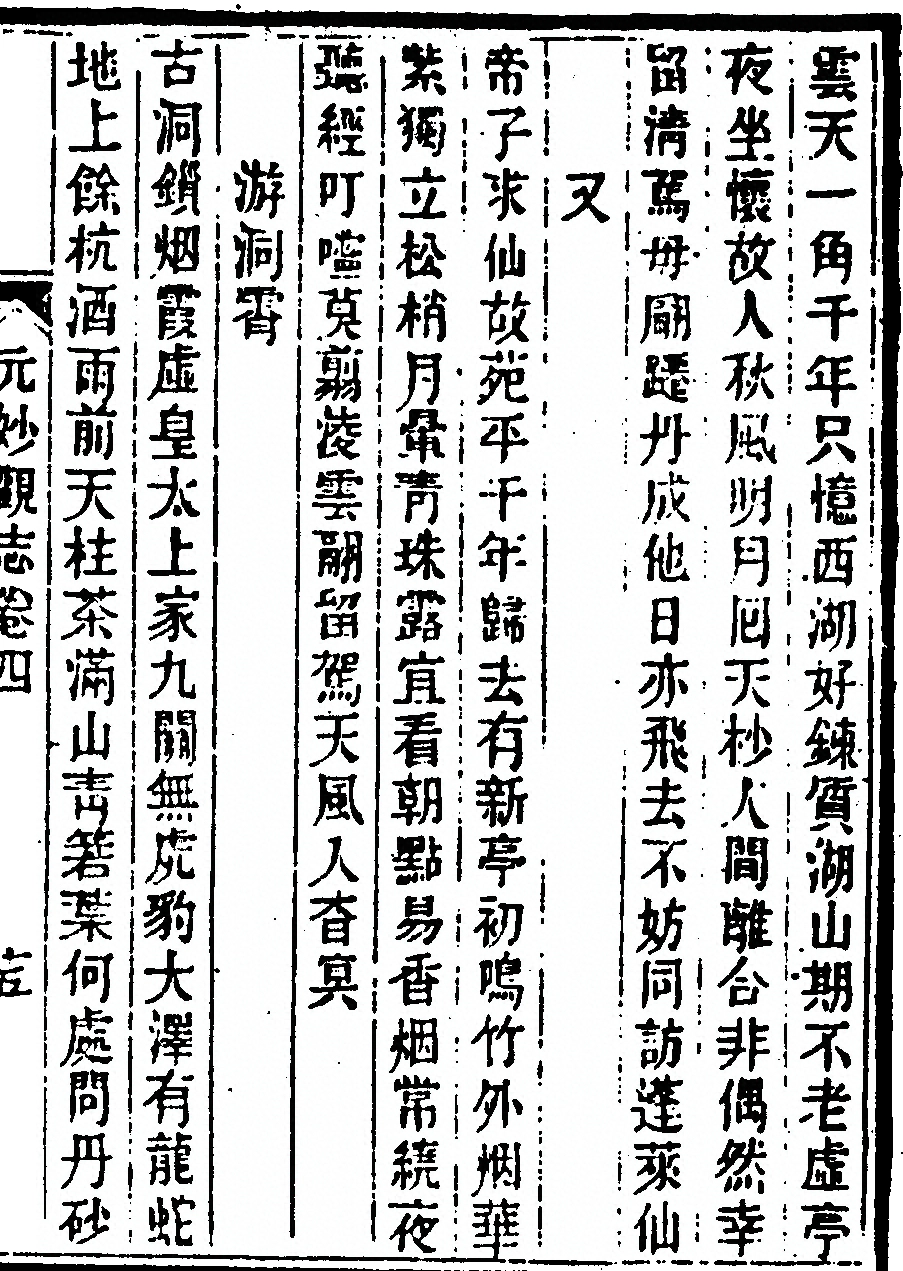 雲天一角千年只憶西湖好鍊質湖山期不老虛亭
夜坐懷故人秋風明月囘天杪人間離合非偶然幸
留淸駕毋翩躚丹成他日亦飛去不妨同訪蓬萊仙
又
帝子求仙故苑平千年歸去有新亭初鳴竹外烟華
紫獨立松梢月暈靑珠露宜看朝點易香烟常繞夜
聽經叮嚀莫翦凌雲翮留駕天風入杳冥
游洞霄
古洞鎖烟霞虛皇太上家九關無虎豹大澤有龍蛇
地上餘杭酒雨前天柱茶滿山靑箬葉何處問丹砂
元妙觀志卷四